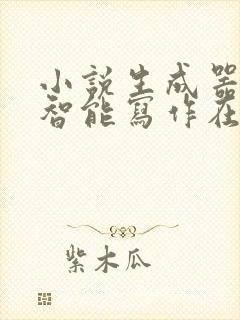 小説生成器
智能寫作在
紫木瓜